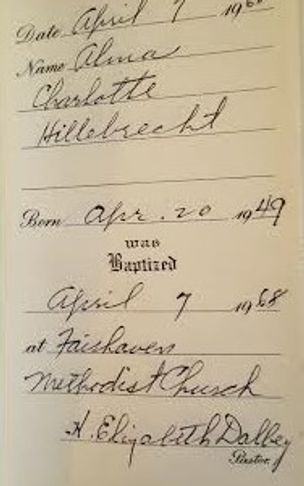 Date April 7 1968
Name Alma
Charlotte
Hillebrecht
Born Apr. 20 1949
was
Baptized
April 7 1968
at Fairhaven
Methodist Church
H. Elizabeth Dalbey
Pastor